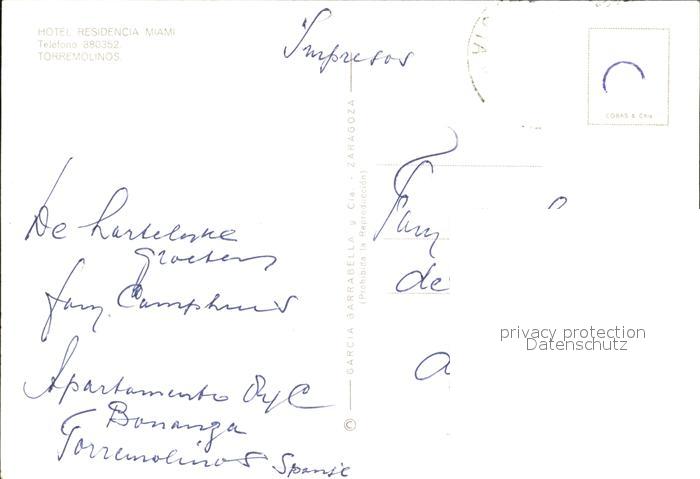 HOTEL RESIDENCIA MIAMI
Teléfono 880352.
TORREMOLINOS.
Impresos
De hartelyke
groeten
fam. Camphuis
Apartamento
Bonanza
Torremolinos Spanje
© GARCIA GARRABELLA y Cia. - ZARAGOZA
(Prohibida la Reproducción)
COBAS & Cía
Fam
de
privacy protection
Datenschutz